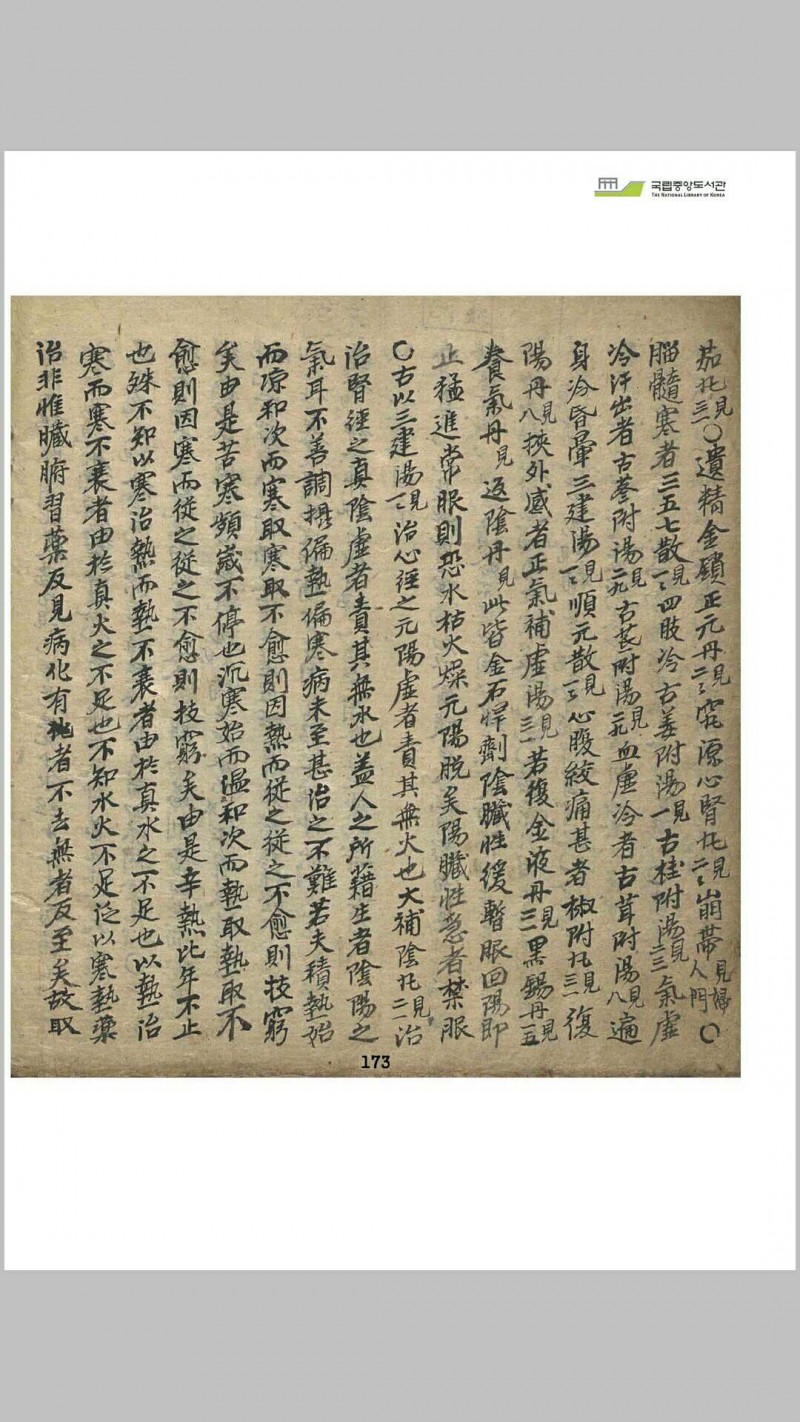 국립중앙도서관
THE NATIONAL LIBRARY OF KOREA
茄丸見三一〇遺精金鎖正元丹見二三究源心腎丸見二三崩帶見婦人門〇
腦髓寒者三五七散見三三四肢冷古姜附湯見一古桂附湯見二三氣虛
冷汗出者古蔘附湯見二九古芪附湯見二九血虛冷者古茸附湯見八遍
身冷昏暈三建湯見三三順元散見三三心腹絞痛甚者椒附丸見三一復
陽丹見八挾外感者正氣補虛湯見三一若復金液丹見三三黑錫丹見五
養氣丹見返陰丹見此皆金石悍劑陰臟性緩暫服回陽即
止猛進常服則恐水枯火燥元陽脫矣陽臟性急者禁服
〇古以三建湯見三三治心經之元陽虛者責其無火也大補陰丸見二一治
治腎經之真陰虛者責其無水也盖人之所藉生者陰陽之
氣耳不善調攝偏熱偏寒病未至甚治之不難若夫積熱始
而凉和次而寒取寒取不愈則因熱而從之從之不愈則技窮
矣由是苦寒頻歲不停也沉寒始而溫和次而熱取熱取不
愈則因寒而從之從之不愈則技窮矣由是辛熱比年不止
也殊不知以寒治熱而熱不衰者由於真水之不足也以熱治
寒而寒不衰者由於真火之不足也不知水火不足泛以寒熱藥
治非惟臟腑習藥反見病化有者不去無者反至矣故取
173